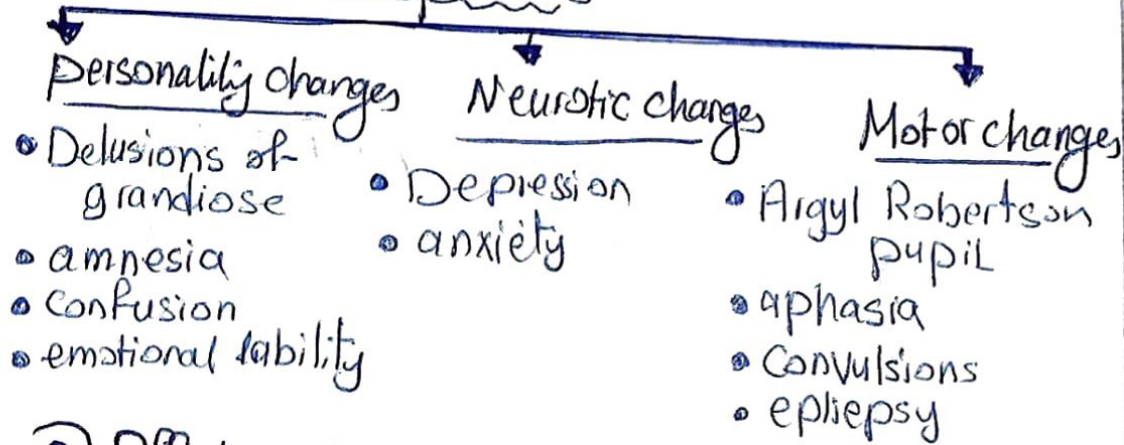 Personality changes
• Delusions of
grandiose
• amnesia
• Confusion
• emotional lability
Neurotic changes
• Depression
• anxiety
Motor changes
• Argyl Robertson
pupil
• aphasia
• Convulsions
• epliepsy